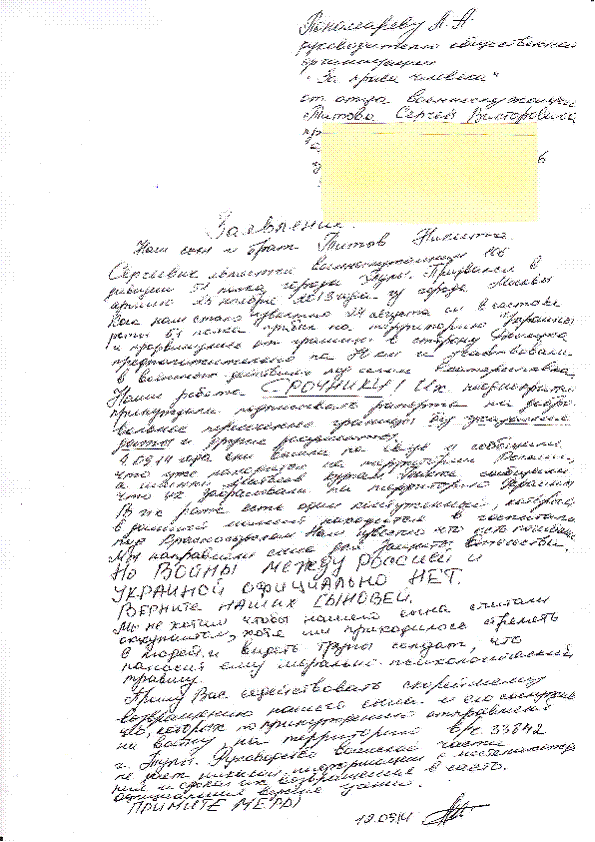 Пономареву Л. А.
руководителю общественной
организации
"За права человека"
от отца военнослужащего
Титова Сергея Викторовича
6
Заявление.
Наш сын и брат Титов Никита
Сергеевич является военнослужащим
51 полка города Тулы. Призвался в
армию 25 ноября 2013 года из города Москвы
Как нам стало известно 24 августа он в составе
роты 51 полка прибыл на территорию Украины
и продвинулись от границы в сторону Донецка
предположительно на
в военных действиях под селом
Наши ребята СРОЧНИКИ! Их
принудили подписывать рапорта на добро-
вольное пересечение границы без указания
даты и другие документы.
4.09.14 года они вышли на связь и сообщили
что уже находятся на территории России,
а
что их забрасывали на территорию Украины
В их роте есть один контуженный, который
в данный момент находится в госпитале
под Краснодаром Нам известно что есть погибшие
Мы направляли сына для защиты Отечества.
Но ВОЙНЫ МЕЖДУ РОССИЕЙ И
УКРАИНОЙ ОФИЦИАЛЬНО НЕТ.
ВЕРНИТЕ НАШИХ СЫНОВЕЙ.
Мы не хотим чтобы нашего сына считали
оккупантом, хотя им приходилось стрелять
в людей и видеть трупы солдат, что
наносит ему морально психологический
травму.
Прошу Вас содействовать скорейшему
возвращению нашего сына и его сослужив-
цев, которых принужденно отправляли
на войну на территорию в/с 33842
г. Тулы. Руководство воинской части
не дает никакой информации о местонахожде-
нии и сроках их возвращения в часть.
ПРИМИТЕ МЕРЫ
12.09.14